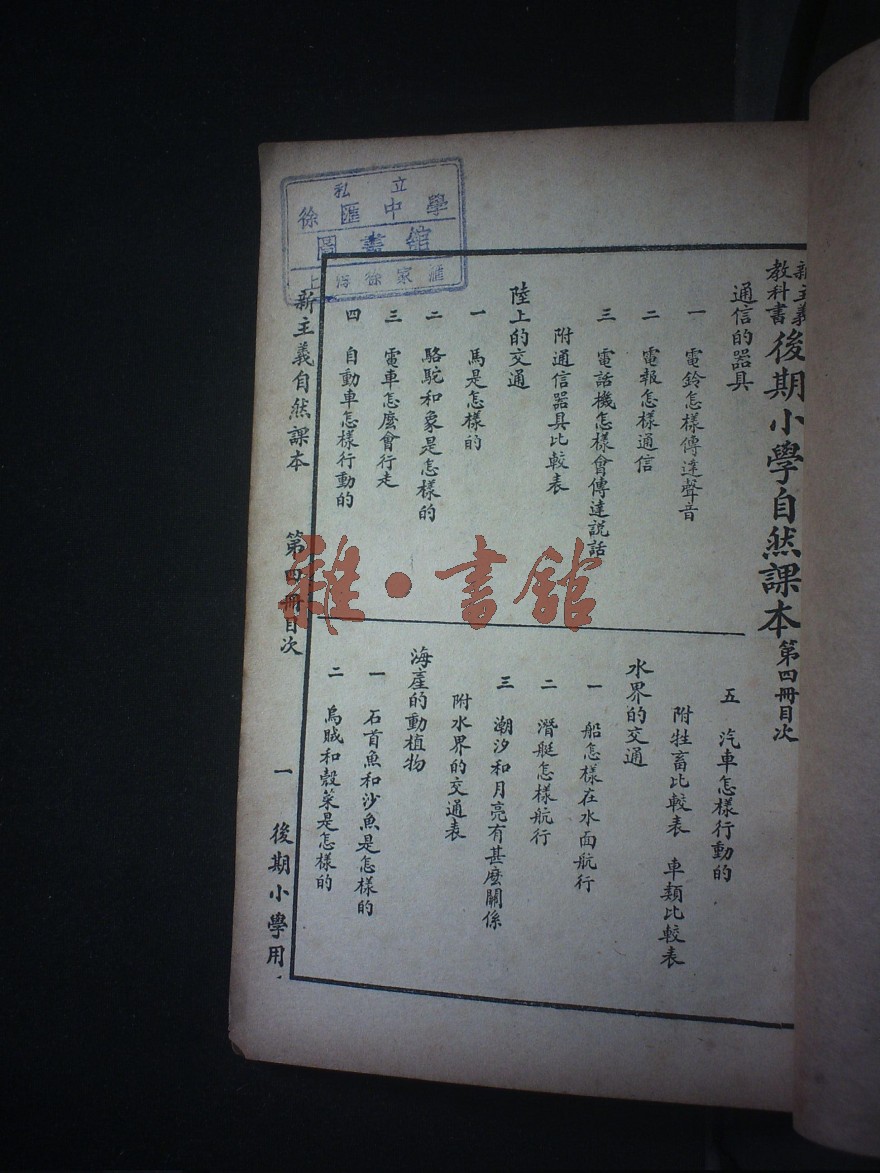 新主義
教科書
後期小學自然課本第四冊目次
通信的器具
一 電鈴怎樣傳達聲音
二 電報怎樣通信
三 電話機怎樣會傳達説話
附通信器具比較表
陸上的交通
一 馬是怎樣的
二 駱駝和象是怎樣的
三 電車怎麼會行走
四 自動車怎樣行動的
五 汽車怎樣行動的
附牲畜比較表 車類比較表
水界的交通
一 船怎樣在水面航行
二 潛艇怎樣航行
三 潮汐和月亮有甚麼關係
附水界的交通表
海產的動植物
一 石首魚和沙魚是怎樣的
二 烏賊和殼菜是怎樣的
新主義自然課本 第四冊目次 一 後期小學用
私立
徐匯中學
圖書館
上海徐家匯
雜·書館